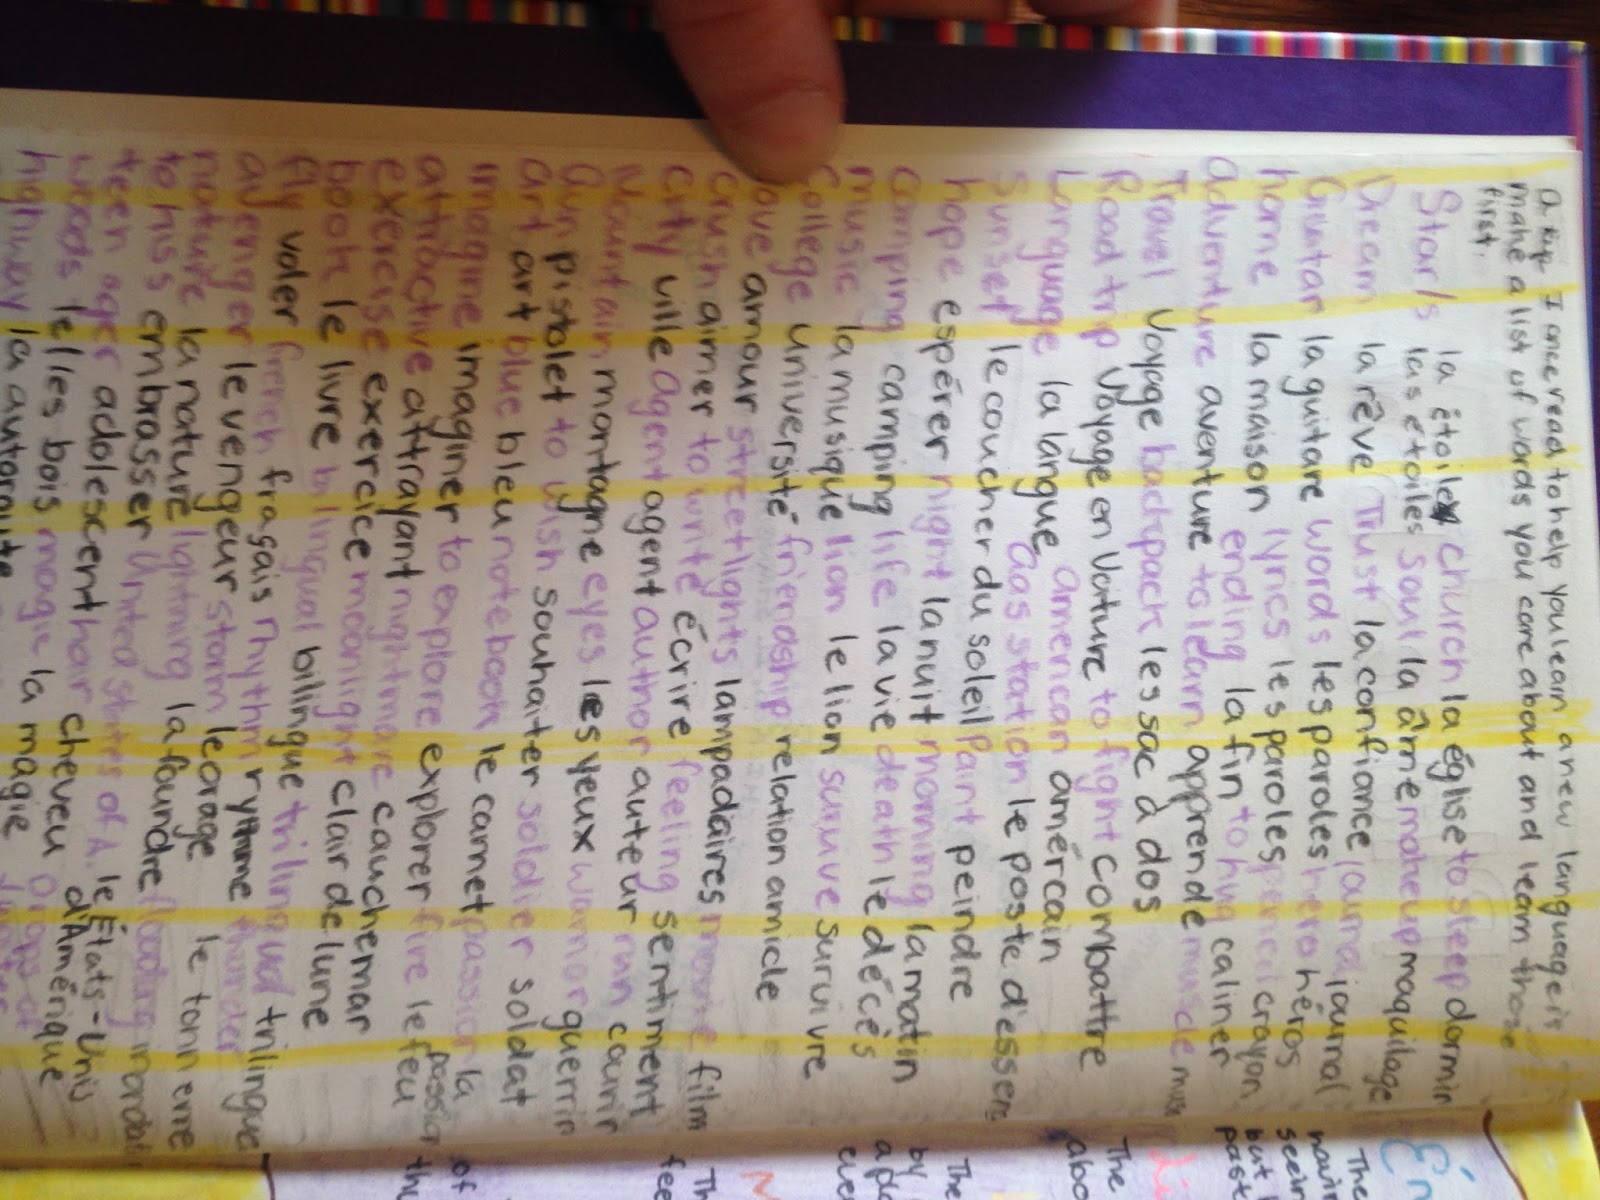 a tip I once read to help you learn a new language is
make a list of words you care about and learn those
first.
Star/s la étoile church la église to sleep dormir
las étoiles soul la âme makeup maquilage
Dream la rêve Trust la confiance journal journal
Guitar la guitare words les paroles hero héros
home la maison lyrics les paroles pencil crayon
ending la fin to hug caliner
adventure aventure to learn apprende muscle
Travel Voyage backpack les sac à dos
Road trip voyage en voiture to fight combattre
Language la langue american amércain
Sunset le coucher du soleil gas station le poste d'essenc
hope espérer night la nuit Paint peindre
Camping camping life la vie morning la matin
music la musique lion le lion death le décès
College université friendship relation amicle survive survivre
love amour streetlights lampadaires movie film
crush aimer to write écrire feeling sentiment
city ville agent agent author auteur run courir
Mountain montagne eyes les yeux warrior guerrir
Gun pistolet to wish souhaiter soldier soldat
art art blue bleu notebook le carnet passion la passion
imagine imaginer to explore explorer fire le feu
attractive attrayant nightmare cauchemar
exercise exercice moonlight clair de lune
book le livre bilingual bilingue trilingual trilingue
fly voler french fragais rhythm rythme thunder le tonnerre
avenger le vengeur storm le orage
nature la nature lightning la foundre flooding
to kiss embrasser United states of A. le États-Unis d'Amérique
teen ager adolescent hair cheveu
woods le/les bois magic la magie
highway la autoroute